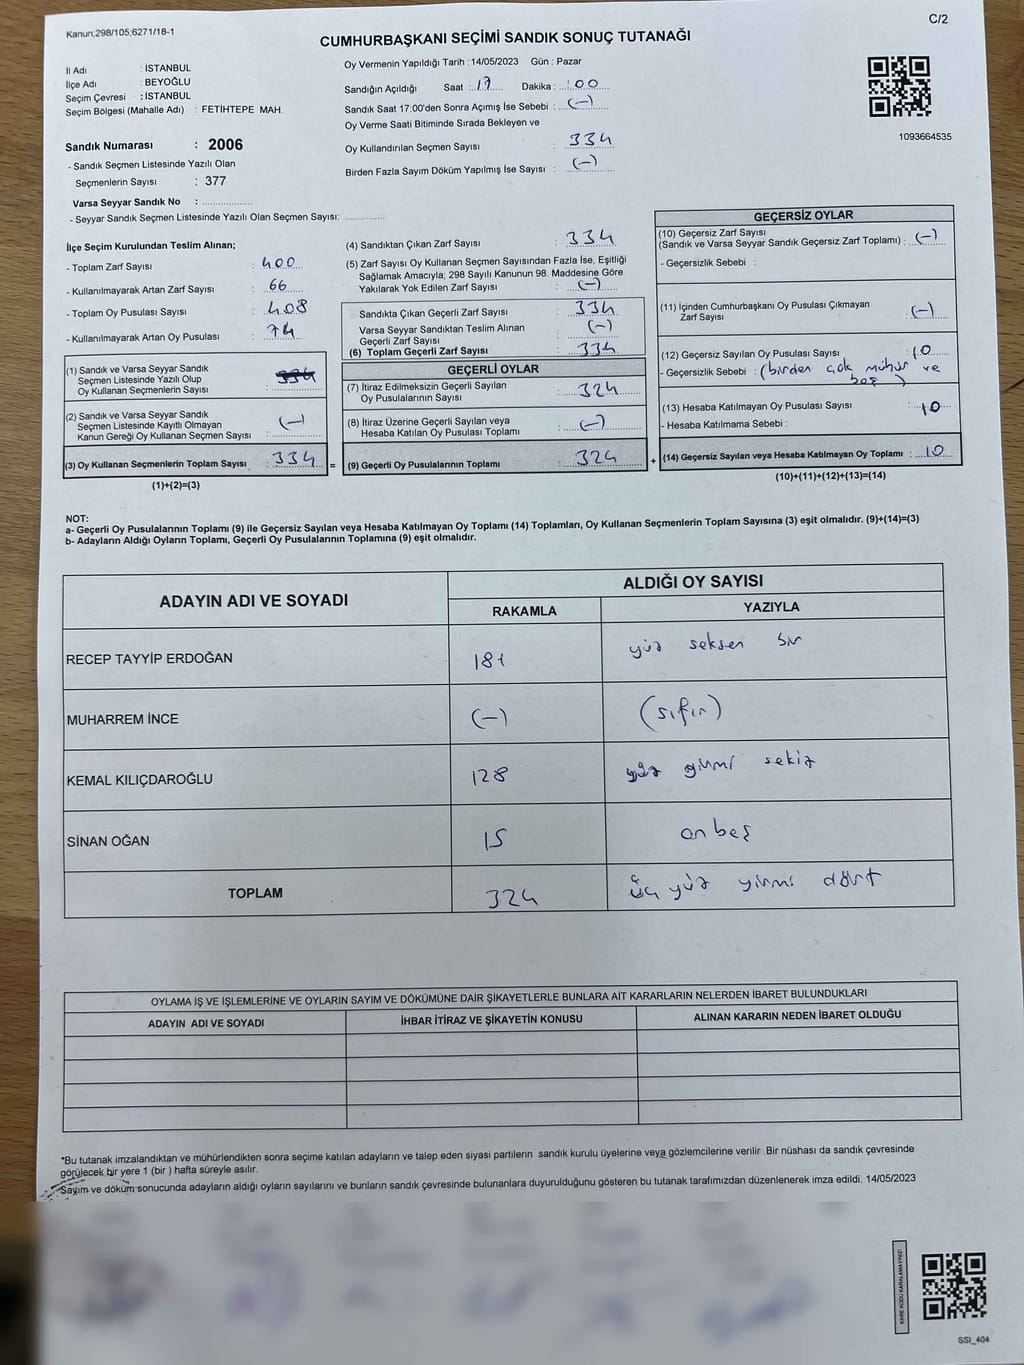 Kanun;298/105;6271/18-1
C/2
CUMHURBAŞKANI SEÇİMİ SANDIK SONUÇ TUTANAĞI
İl Adı : İSTANBUL
İlçe Adı : BEYOĞLU
Seçim Çevresi : İSTANBUL
Seçim Bölgesi (Mahalle Adı) : FETİHTEPE MAH.
Oy Vermenin Yapıldığı Tarih : 14/05/2023 Gün : Pazar
Sandığın Açıldığı Saat : 17 Dakika : 00
Sandık Saat 17:00'den Sonra Açımış İse Sebebi : (-)
Oy Verme Saati Bitiminde Sırada Bekleyen ve
Oy Kullandırılan Seçmen Sayısı : 334
Birden Fazla Sayım Döküm Yapılmış İse Sayısı : (-)
1093664535
Sandık Numarası : 2006
- Sandık Seçmen Listesinde Yazılı Olan
Seçmenlerin Sayısı : 377
Varsa Seyyar Sandık No :
- Seyyar Sandık Seçmen Listesinde Yazılı Olan Seçmen Sayısı:
İlçe Seçim Kurulundan Teslim Alınan;
- Toplam Zarf Sayısı : 400
- Kullanılmayarak Artan Zarf Sayısı : 66
- Toplam Oy Pusulası Sayısı : 408
- Kullanılmayarak Artan Oy Pusulası : 74
(1) Sandık ve Varsa Seyyar Sandık
Seçmen Listesinde Yazılı Olup
Oy Kullanan Seçmenlerin Sayısı : 334
(2) Sandık ve Varsa Seyyar Sandık
Seçmen Listesinde Kayıtlı Olmayan
Kanun Gereği Oy Kullanan Seçmen Sayısı : (-)
(3) Oy Kullanan Seçmenlerin Toplam Sayısı : 334 =
(1)+(2)=(3)
(4) Sandıktan Çıkan Zarf Sayısı : 334
(5) Zarf Sayısı Oy Kullanan Seçmen Sayısından Fazla İse, Eşitliği
Sağlamak Amacıyla; 298 Sayılı Kanunun 98. Maddesine Göre
Yakılarak Yok Edilen Zarf Sayısı : (-)
Sandıkta Çıkan Geçerli Zarf Sayısı : 334
Varsa Seyyar Sandıktan Teslim Alınan
Geçerli Zarf Sayısı : (-)
(6) Toplam Geçerli Zarf Sayısı : 334
GEÇERLİ OYLAR
(7) İtiraz Edilmeksizin Geçerli Sayılan
Oy Pusulalarının Sayısı : 324
(8) İtiraz Üzerine Geçerli Sayılan veya
Hesaba Katılan Oy Pusulası Toplamı : (-)
(9) Geçerli Oy Pusulalarının Toplamı : 324 +
GEÇERSİZ OYLAR
(10) Geçersiz Zarf Sayısı
(Sandık ve Varsa Seyyar Sandık Geçersiz Zarf Toplamı) : (-)
- Geçersizlik Sebebi :
(11) İçinden Cumhurbaşkanı Oy Pusulası Çıkmayan
Zarf Sayısı : (-)
(12) Geçersiz Sayılan Oy Pusulası Sayısı : 10
- Geçersizlik Sebebi : (birden çok mühür ve
boş)
(13) Hesaba Katılmayan Oy Pusulası Sayısı : 10
- Hesaba Katılmama Sebebi :
(14) Geçersiz Sayılan veya Hesaba Katılmayan Oy Toplamı : 10
(10)+(11)+(12)+(13)=(14)
NOT:
a- Geçerli Oy Pusulalarının Toplamı (9) ile Geçersiz Sayılan veya Hesaba Katılmayan Oy Toplamı (14) Toplamları, Oy Kullanan Seçmenlerin Toplam Sayısına (3) eşit olmalıdır. (9)+(14)=(3)
b- Adayların Aldığı Oyların Toplamı, Geçerli Oy Pusulalarının Toplamına (9) eşit olmalıdır.
ADAYIN ADI VE SOYADI
ALDIĞI OY SAYISI
RAKAMLA YAZIYLA
RECEP TAYYİP ERDOĞAN 181 yüz seksen bir
MUHARREM İNCE (-) (sıfır)
KEMAL KILIÇDAROĞLU 128 yüz yirmi sekiz
SİNAN OĞAN 15 on beş
TOPLAM 324 üç yüz yirmi dört
OYLAMA İŞ VE İŞLEMLERİNE VE OYLARIN SAYIM VE DÖKÜMÜNE DAİR ŞİKAYETLERLE BUNLARA AİT KARARLARIN NELERDEN İBARET BULUNDUKLARI
ADAYIN ADI VE SOYADI İHBAR İTİRAZ VE ŞİKAYETİN KONUSU ALINAN KARARIN NEDEN İBARET OLDUĞU
*Bu tutanak imzalandıktan ve mühürlendikten sonra seçime katılan adayların ve talep eden siyasi partilerin sandık kurulu üyelerine veya gözlemcilerine verilir. Bir nüshası da sandık çevresinde
görülecek bir yere 1 (bir ) hafta süreyle asılır.
Sayım ve döküm sonucunda adayların aldığı oyların sayılarını ve bunların sandık çevresinde bulunanlara duyurulduğunu gösteren bu tutanak tarafımızdan düzenlenerek imza edildi. 14/05/2023
KARE KODU KARALAMAYINIZ!
SSI_404